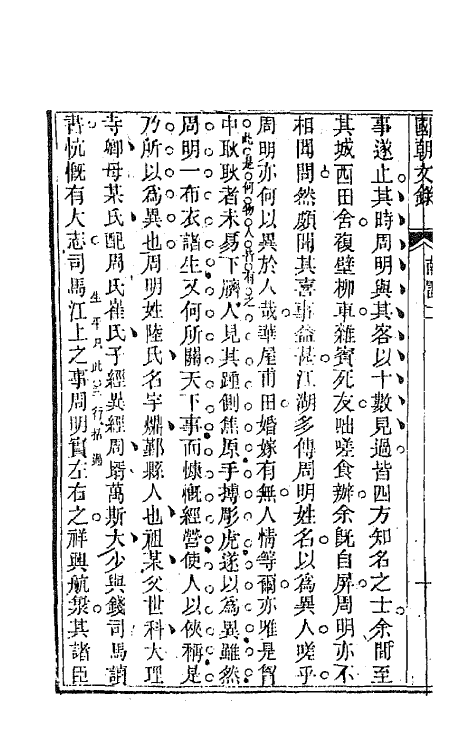 國朝文錄
南雷
事遂止其時周明與其客以十數見過皆四方知名之士余間至
其城西田舍複壁柳車雜賓死友咄嗟食辦余既自屏周明亦不
相聞問然頗聞其喜事益甚江湖多傳周明姓名以為異人嗟乎
周明亦何以異於人哉華屋甫田婚嫁有無人情等爾亦唯是胷
此是何人皆有之
中耿耿者未易下臍人見其踵側焦原手搏彫虎遂以為異雖然
周明一布衣諸生又何所關天下事而慷慨經營使人以俠稱是
乃所以為異也周明姓陸氏名宇㸌鄞縣人也祖某父世科大理
寺卿母某氏配周氏崔氏子經異經周壻萬斯大少與錢司馬讀
生平只此三行括過
書忼慨有大志司馬江上之事周明實左右之祥興航絫其諸臣